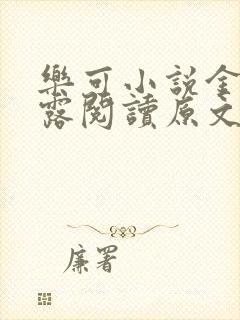 樂可小說金
露閱讀原文
廉署